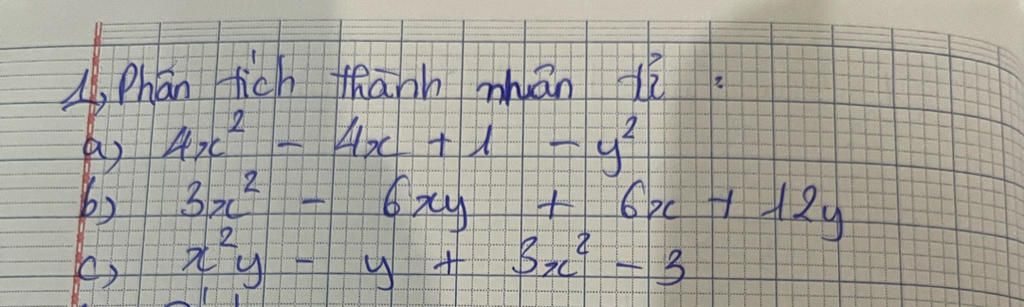 1, Phân tích thành nhân tử :
a) 4x² - 4x + 1 - y²
b) 3x² - 6xy + 6x + 12y
c) x²y - y + 3x² - 3